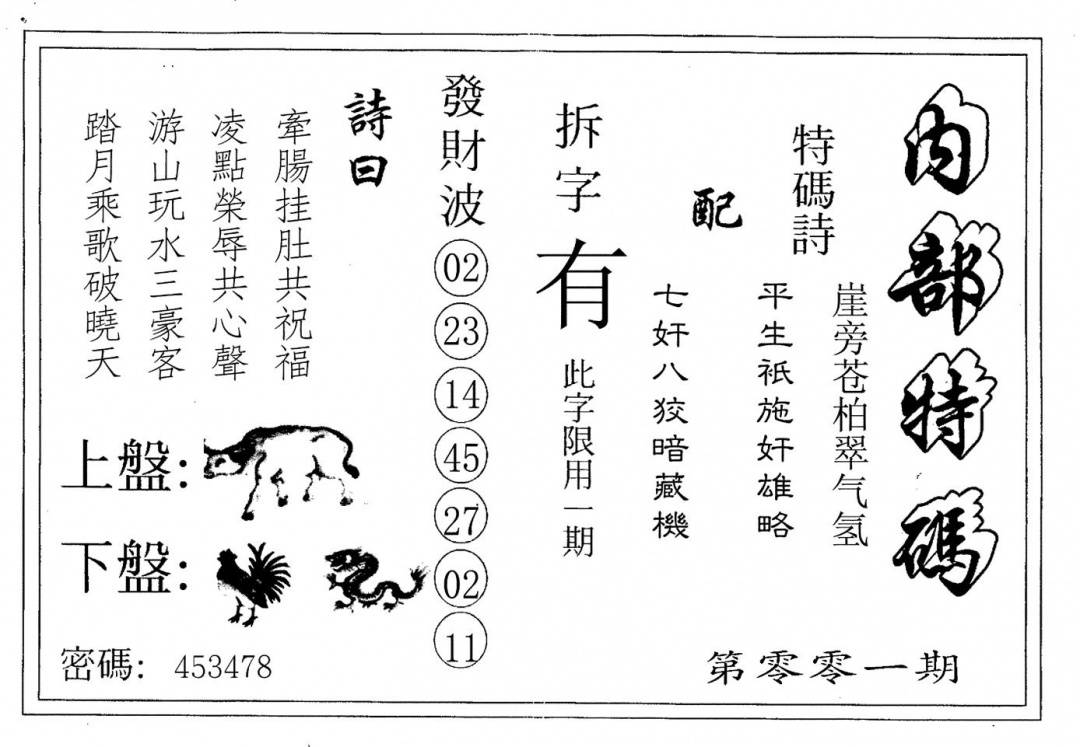 内部特碼
特碼詩
崖旁苍柏翠气氢
平生祇施奸雄略
配
七奸八狡暗藏機
拆字
有
此字限用一期
發財波
02
23
14
45
27
02
11
詩曰
牽腸挂肚共祝福
凌點榮辱共心聲
游山玩水三豪客
踏月乘歌破曉天
上盤:
下盤:
密碼: 453478
第零零一期